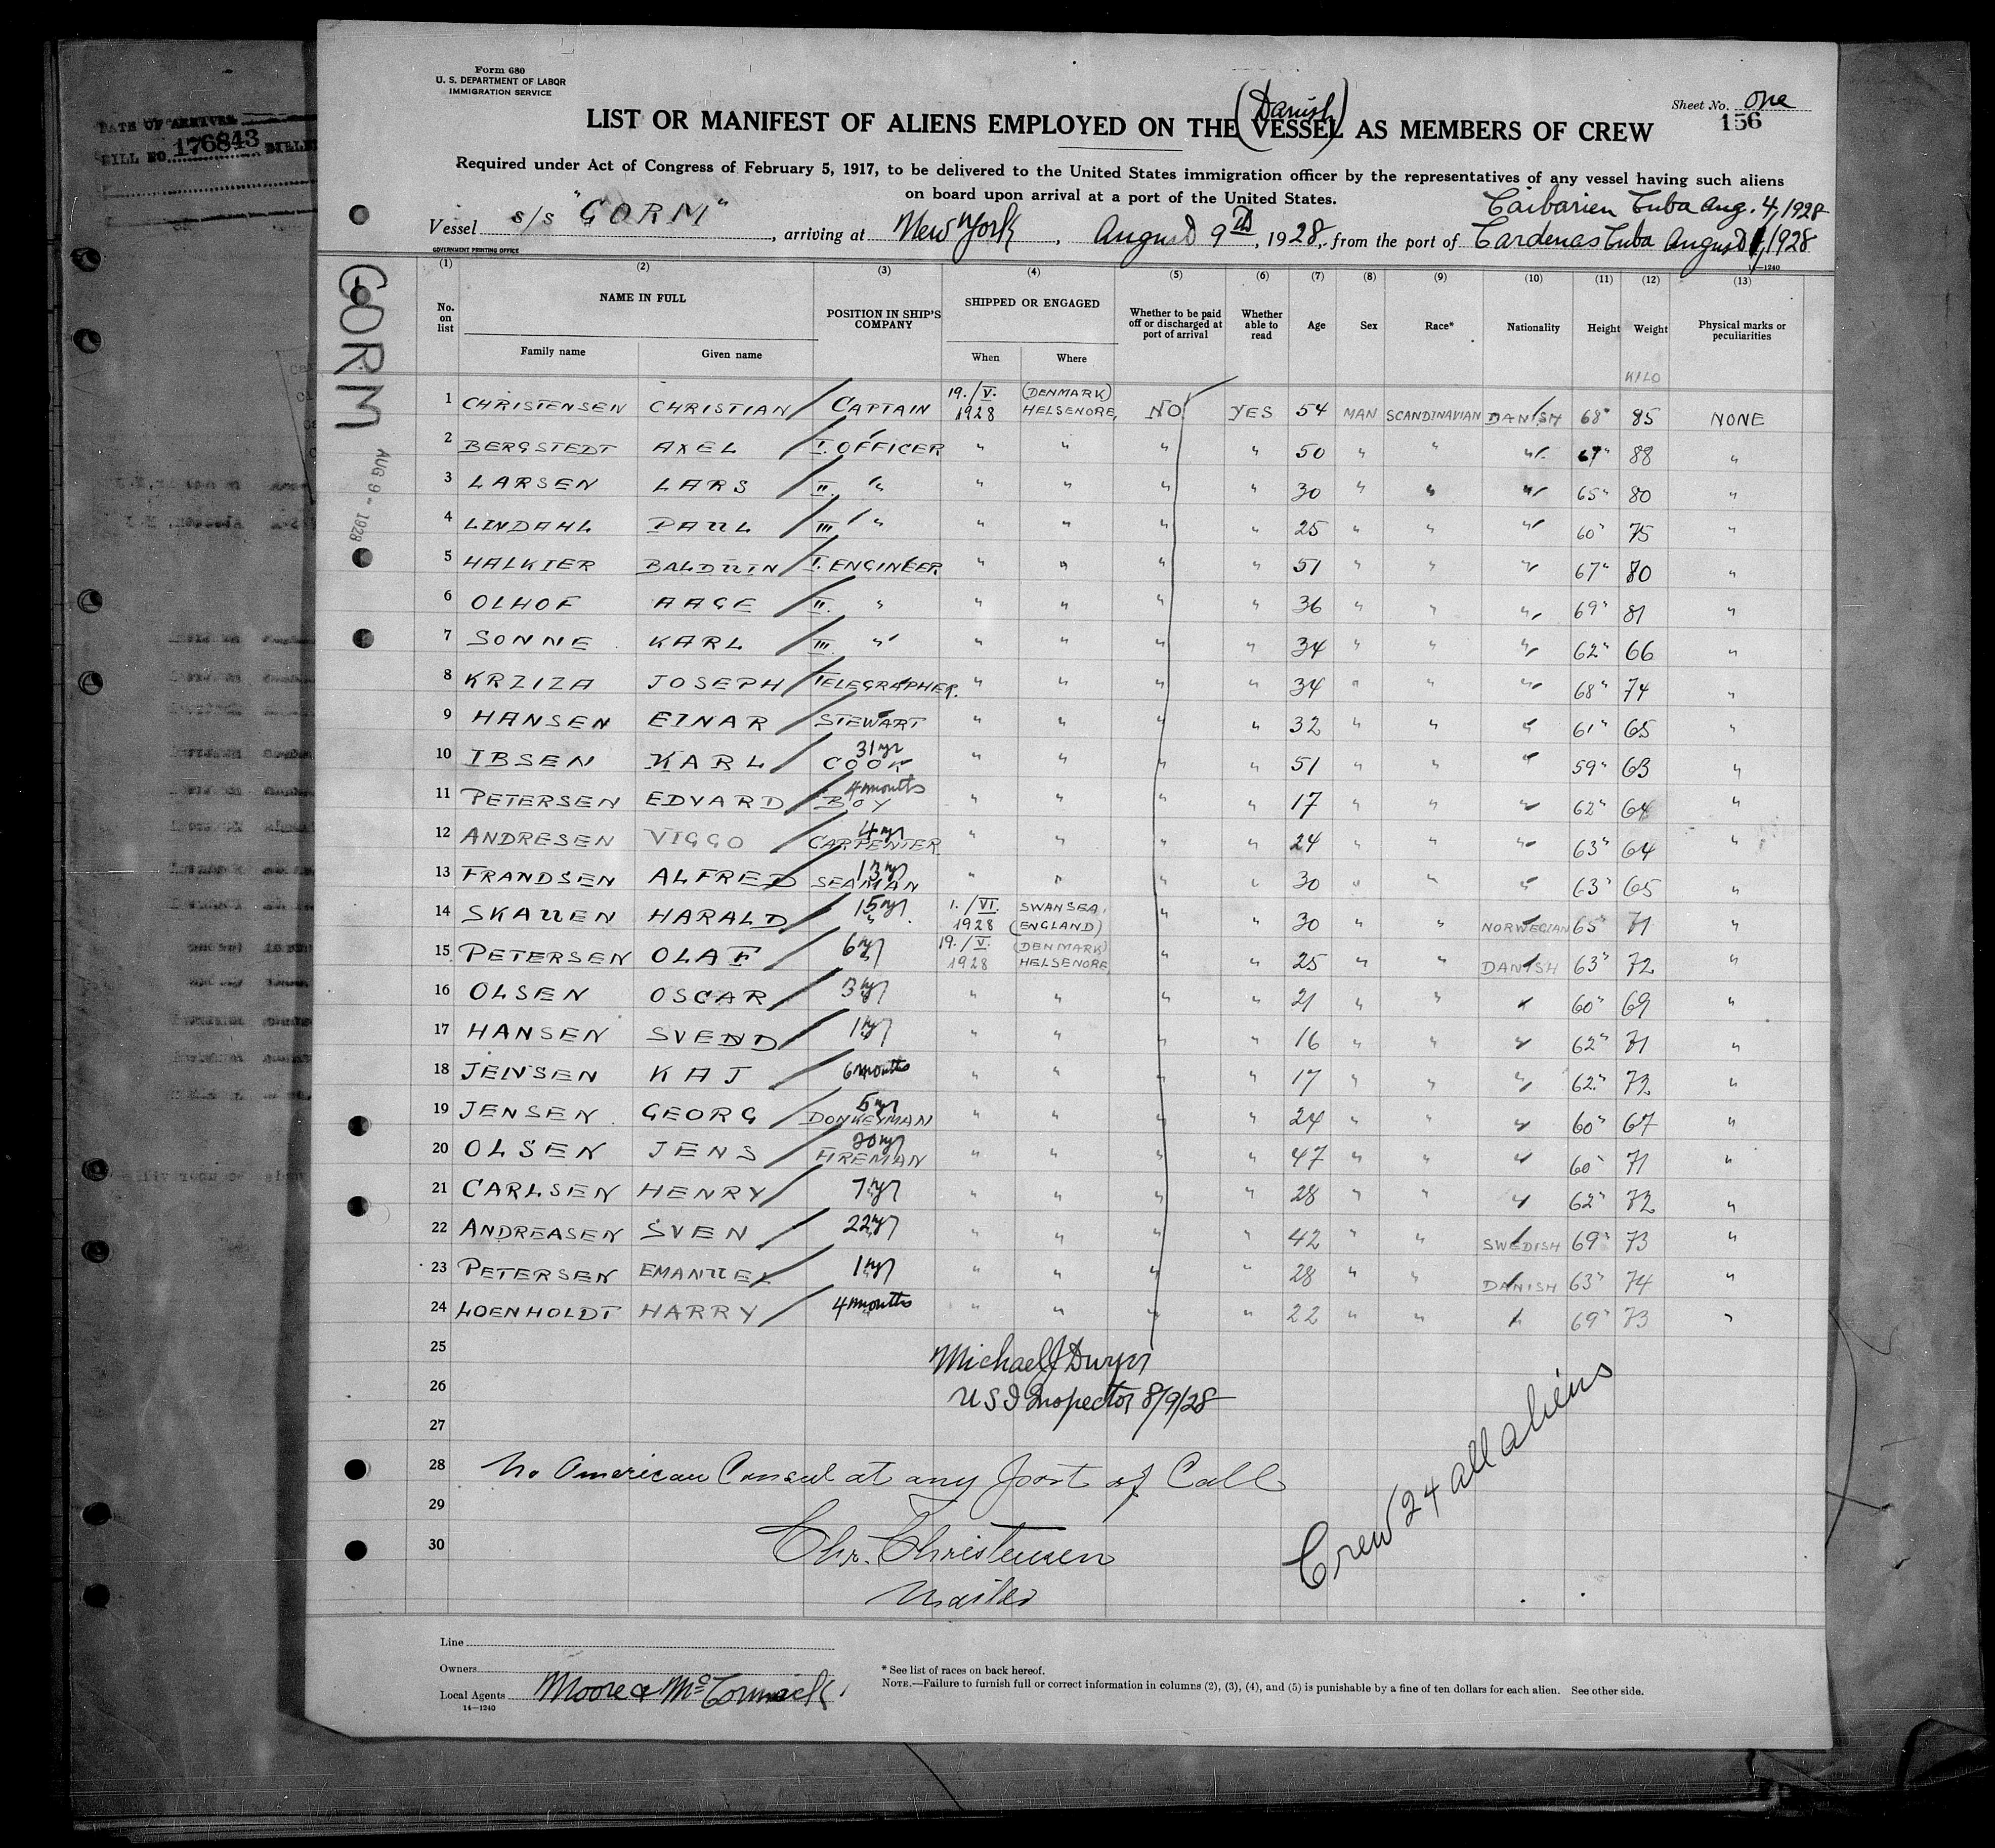 Form 680
U. S. DEPARTMENT OF LABOR
IMMIGRATION SERVICE
Sheet No. one
156
(Danish)
LIST OR MANIFEST OF ALIENS EMPLOYED ON THE VESSEL AS MEMBERS OF CREW
Required under Act of Congress of February 5, 1917, to be delivered to the United States immigration officer by the representatives of any vessel having such aliens
on board upon arrival at a port of the United States.
Caibarien Cuba Aug. 4, 1928
Vessel s/s "GORM", arriving at New York, August 9th, 1928, from the port of Cardenas Cuba August 1, 1928
GOVERNMENT PRINTING OFFICE
14—1240
(1) (2) (3) (4) (5) (6) (7) (8) (9) (10) (11) (12) (13)
No. on list NAME IN FULL Family name Given name POSITION IN SHIP'S COMPANY SHIPPED OR ENGAGED When Where Whether to be paid off or discharged at port of arrival Whether able to read Age Sex Race* Nationality Height Weight Physical marks or peculiarities
KILO
1 CHRISTENSEN CHRISTIAN CAPTAIN 19./V. 1928 (DENMARK) HELSENORE, NO YES 54 MAN SCANDINAVIAN DANISH 68" 85 NONE
2 BERGSTEDT AXEL I. OFFICER " " " " 50 " " " 67" 88 "
3 LARSEN LARS II. " " " " " 30 " " " 65" 80 "
4 LINDAHL PAUL III " " " " " 25 " " " 60" 75 "
5 HALKIER BALDUIN I. ENGINEER " " " " 51 " " " 67" 80 "
6 OLHOF AAGE II. " " " " " 36 " " " 69" 81 "
7 SONNE KARL III. " " " " " 34 " " " 62" 66 "
8 KRZIZA JOSEPH TELEGRAPHER. " " " " 34 " " " 68" 74 "
9 HANSEN EINAR STEWART " " " " 32 " " " 61" 65 "
10 IBSEN KARL 31 yr COOK " " " " 51 " " " 59" 63 "
11 PETERSEN EDVARD 4 months BOY " " " " 17 " " " 62" 64 "
12 ANDRESEN VIGGO 4 yr CARPENTER " " " " 24 " " " 63" 64 "
13 FRANDSEN ALFRED 13 yr SEAMAN " " " " 30 " " " 63" 65 "
14 SKAUEN HARALD 15 yr " 1./VI. 1928 SWANSEA, (ENGLAND) " " 30 " " NORWEGIAN 65" 71 "
15 PETERSEN OLAF 6 yr " 19./V. 1928 (DENMARK) HELSENORE " " 25 " " DANISH 63" 72 "
16 OLSEN OSCAR 3 yr " " " " " 21 " " " 60" 69 "
17 HANSEN SVEND 1 yr " " " " " 16 " " " 62" 71 "
18 JENSEN KAJ 6 months " " " " 17 " " " 62" 72 "
19 JENSEN GEORG 5 yr DONKEYMAN " " " " 24 " " " 60" 67 "
20 OLSEN JENS 20 yr FIREMAN " " " " 47 " " " 60" 71 "
21 CARLSEN HENRY 7 yr " " " " " 28 " " " 62" 72 "
22 ANDREASEN SVEN 22 yr " " " " " 42 " " SWEDISH 69" 73 "
23 PETERSEN EMANUEL 1 yr " " " " " 28 " " DANISH 63" 74 "
24 LOENHOLDT HARRY 4 months " " " " 22 " " " 69" 73 "
25
26
27
28
29
30
Michael J Dwyer
U S I Inspector 8/9/28
No American Consul at any port of Call
Chr. Christensen
Master
Crew 24 all aliens
Line
Owners
Local Agents Moore & McCormack.
14—1240
* See list of races on back hereof.
NOTE.—Failure to furnish full or correct information in columns (2), (3), (4), and (5) is punishable by a fine of ten dollars for each alien. See other side.
GORM
AUG 9 - 1928
DATE OF ARRIVAL
BILL NO. 176843